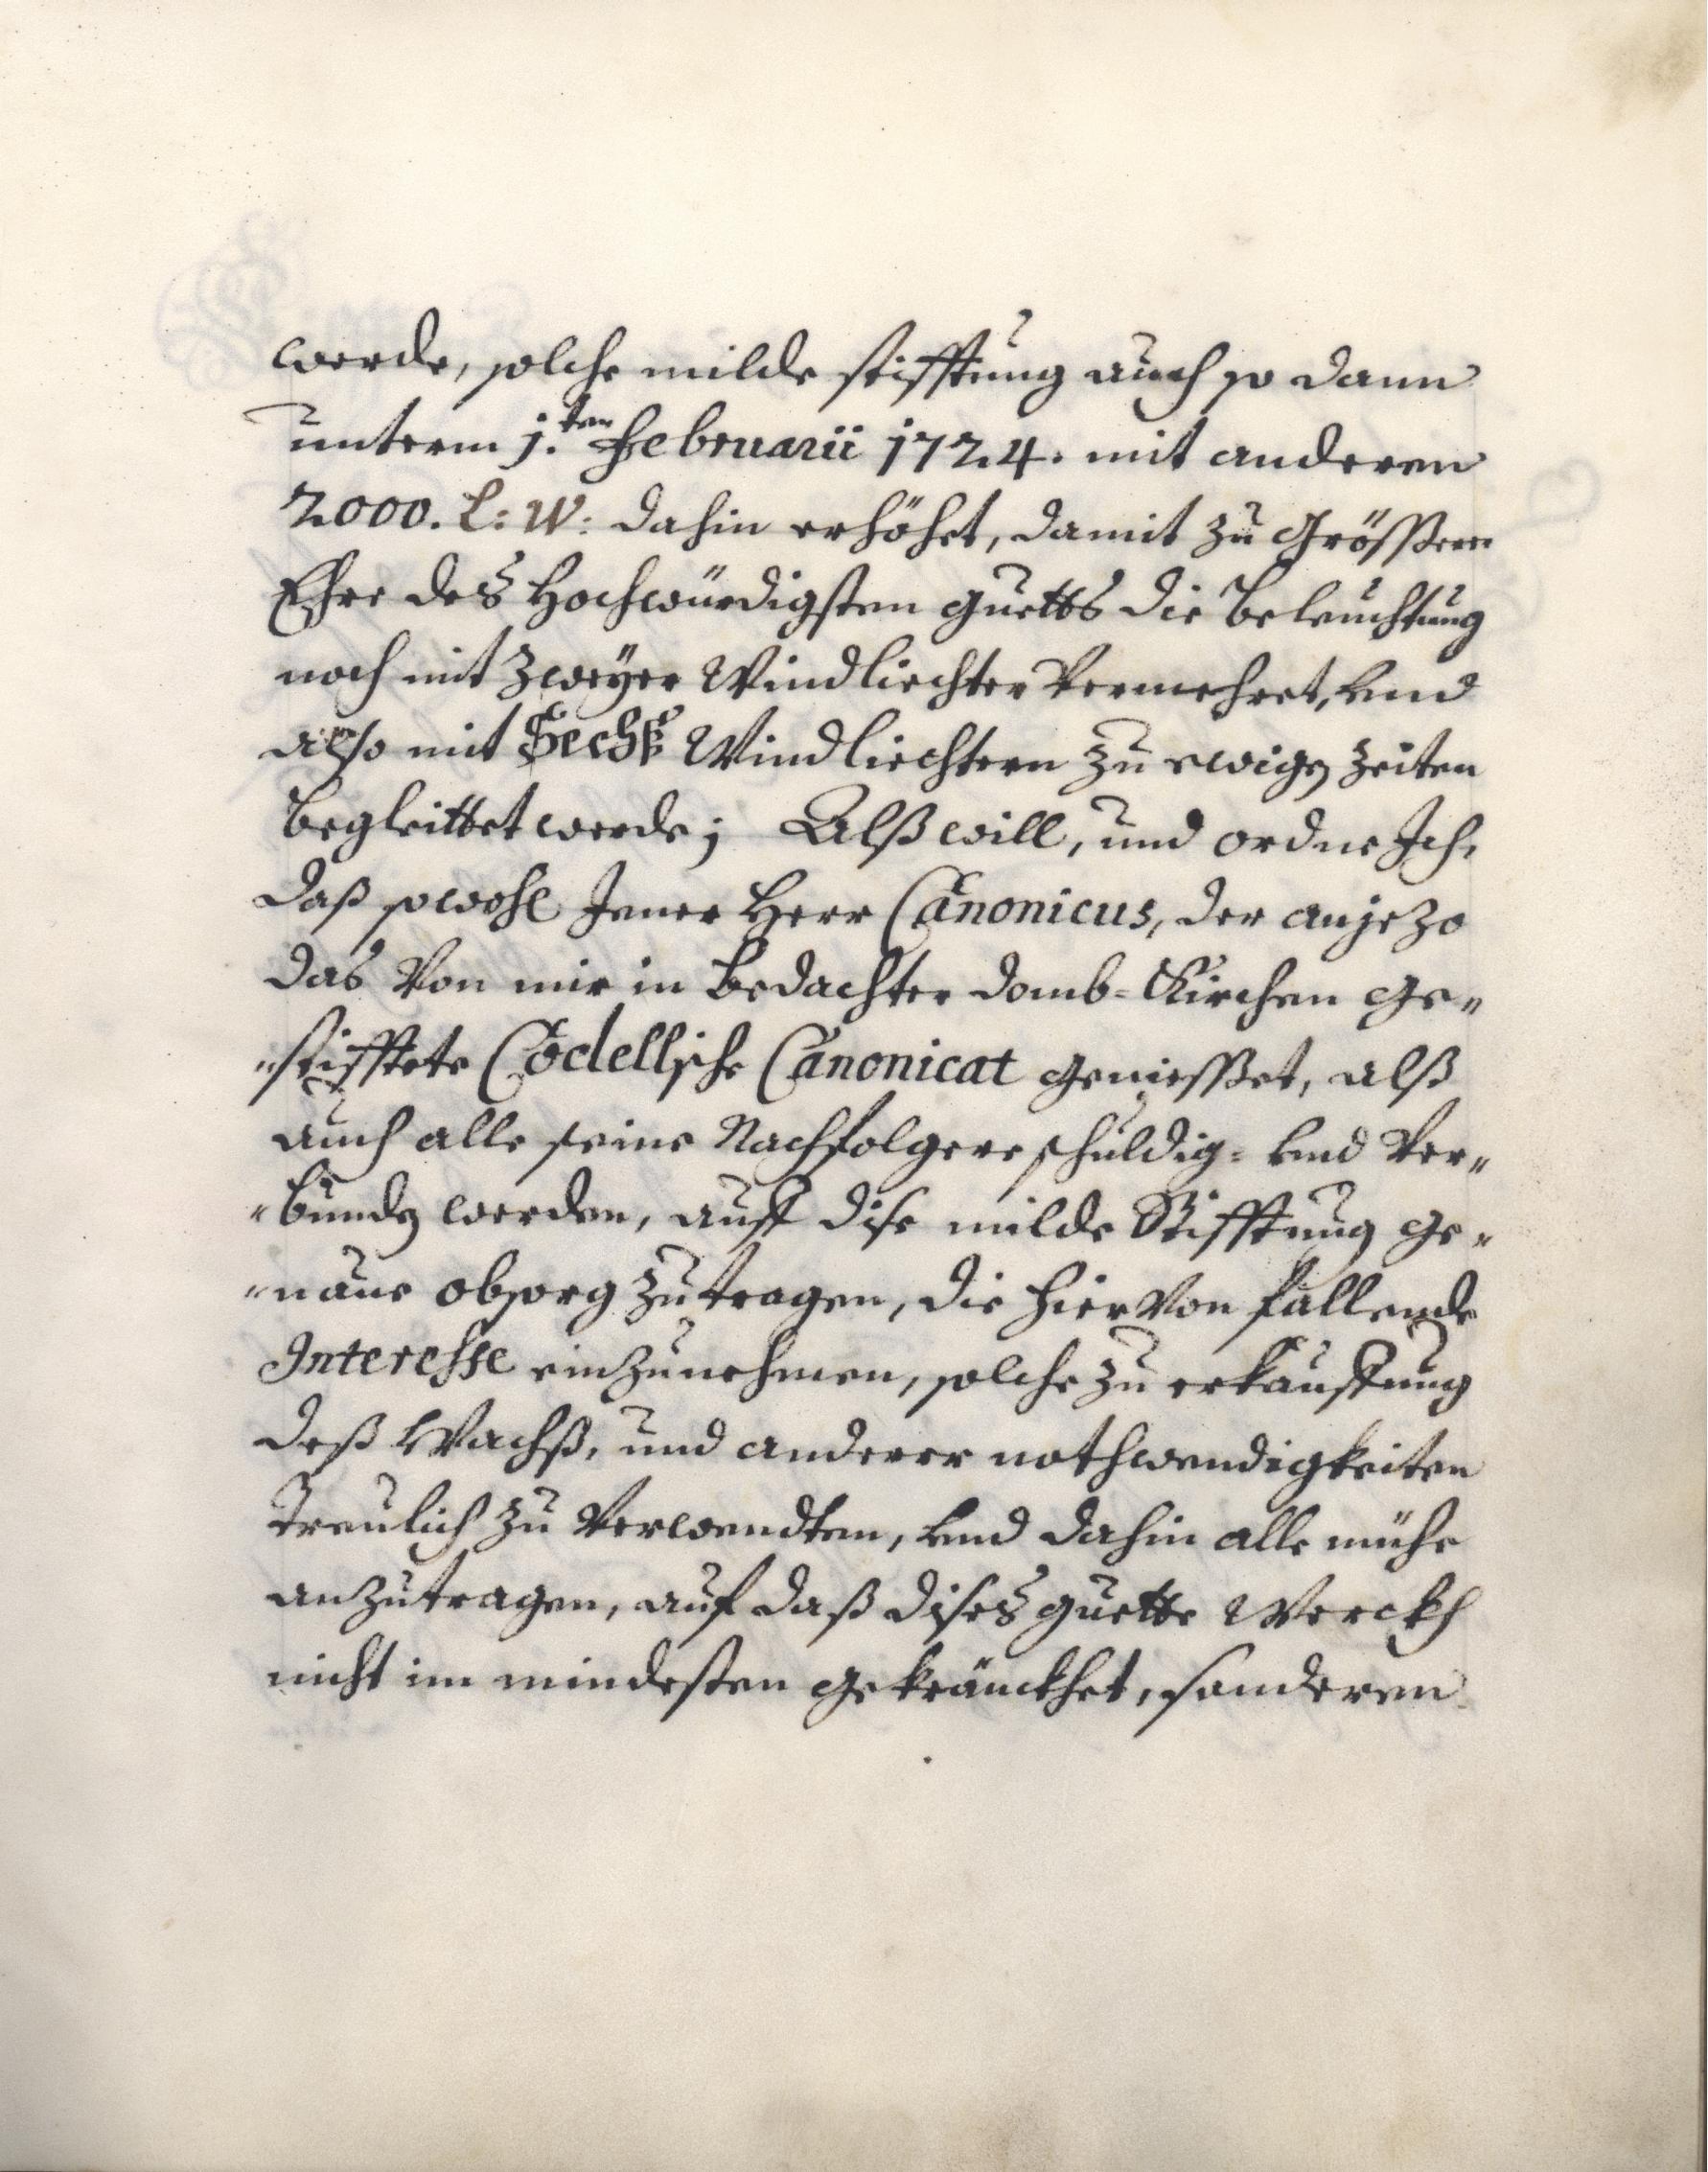 werde, solche milde stifftung auch so dann
unterm j.ten Februarii 1724. mit anderen
2000. L: W: dahin erhöhet, damit zu Grösseren
Ehre des Hochwürdigsten guetts die beleuchtung
noch mit zweyer Windliechter Vermehret, und
also mit Sechß Windliechtern zu ewigen zeiten
begleittet werde; Alß will, und ordne Ich,
daß sowohl Jener Herr Canonicus, der anjezo
das Von mir in bedachter domb-Kirchen ge„
„stifftete Codellische Canonicat geniesset, alß
auch alle seine Nachfolgere schuldig- und Ver„
„bunden werden, auff dise milde Stifftung ge„
„naue obsorg zutragen, die hierVon fallende
Interesse einzunehmen, solche zu erkauffung
deß Wachß, und anderer nothwendigkeiten
Treulich zu Verwendten, und dahin alle mühe
anzutragen, auf daß dises guette Werckh
nicht im mindesten gekränckhet, sonderen